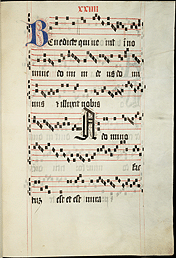 xxiiii
Benedictus qui ve nit i no
mine do mi ni de us do mi
nus illuxit nobis
A do mino
fac
tus est et est mira